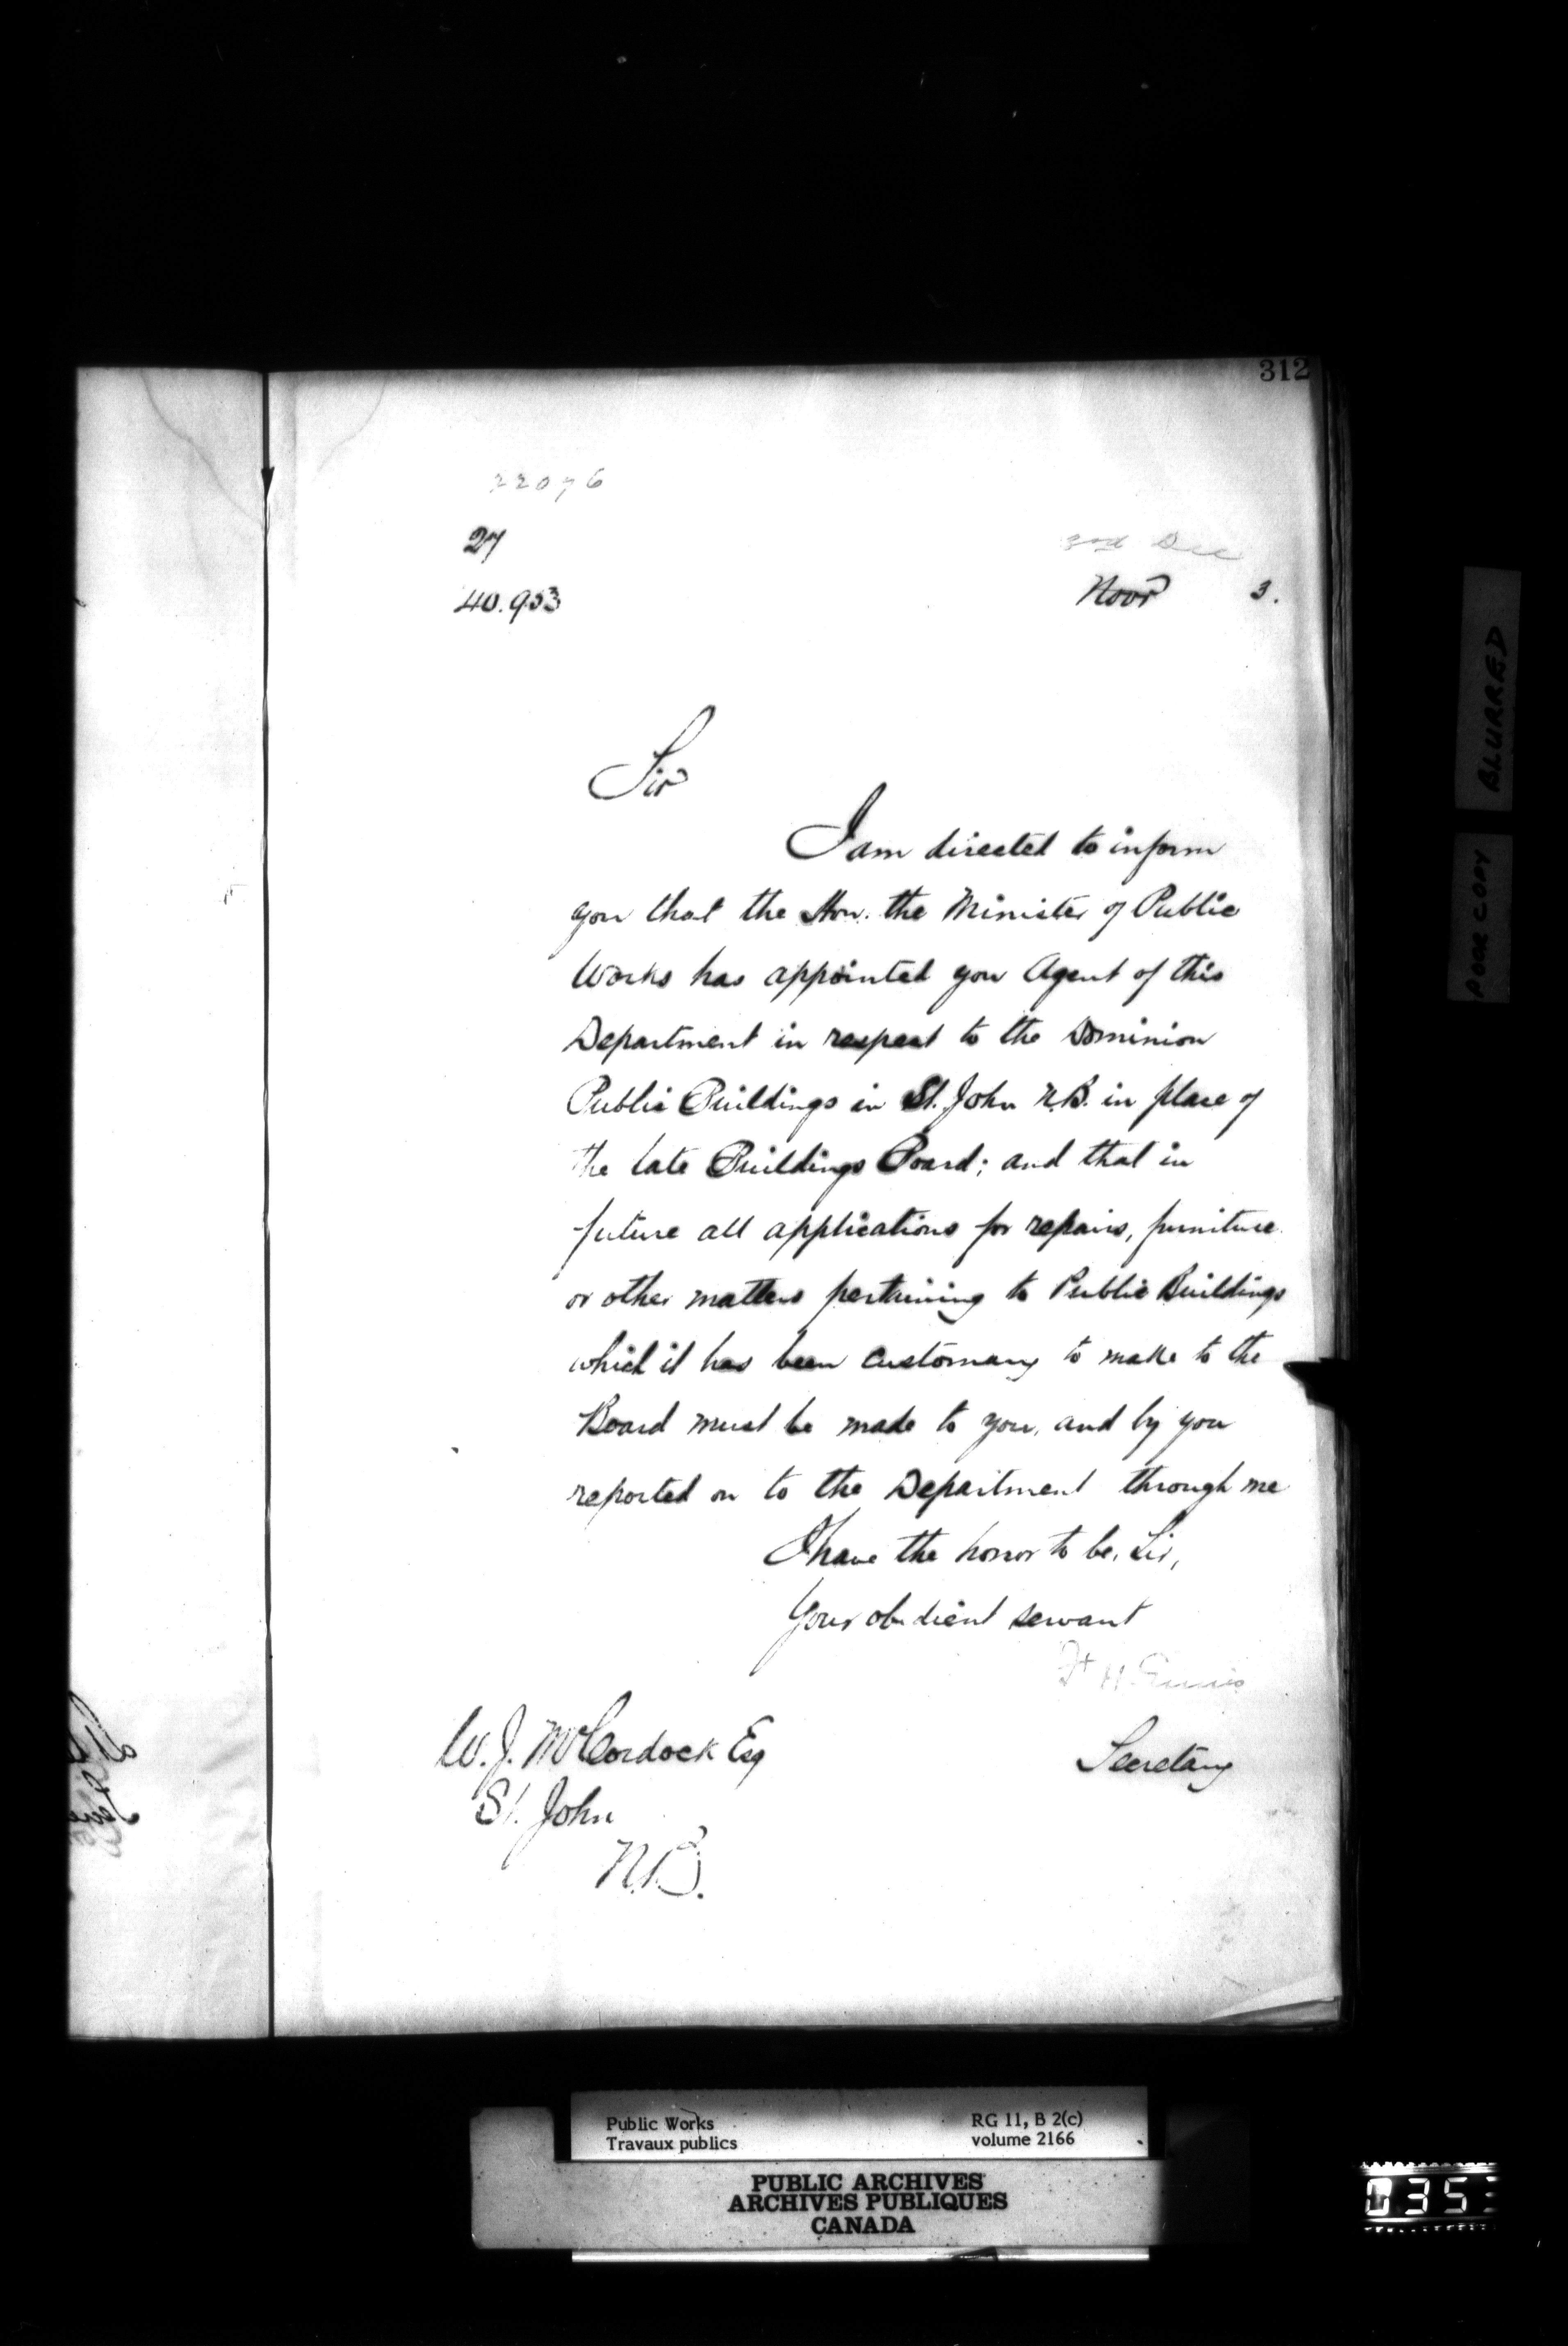 312
22076
27
2nd Dec
40.953
Novr 3.
Sir
I am directed to inform
you that the Hon. the Minister of Public
Works has appointed you Agent of this
Department in respect to the Dominion
Public Buildings in St. John N.B. in place of
the late Buildings Board; and that in
future all applications for repairs, furniture
or other matters pertaining to Public Buildings
which it has been customary to make to the
Board must be made to you, and by you
reported on to the Department through me
I have the honor to be, Sir,
Your obedient servant
F H Ennis
W. J. McCordock Esq
Secretary
St. John
N.B.
BLURRED
POOR COPY
Public Works
Travaux publics
RG 11, B 2(c)
volume 2166
PUBLIC ARCHIVES
ARCHIVES PUBLIQUES
CANADA
0353